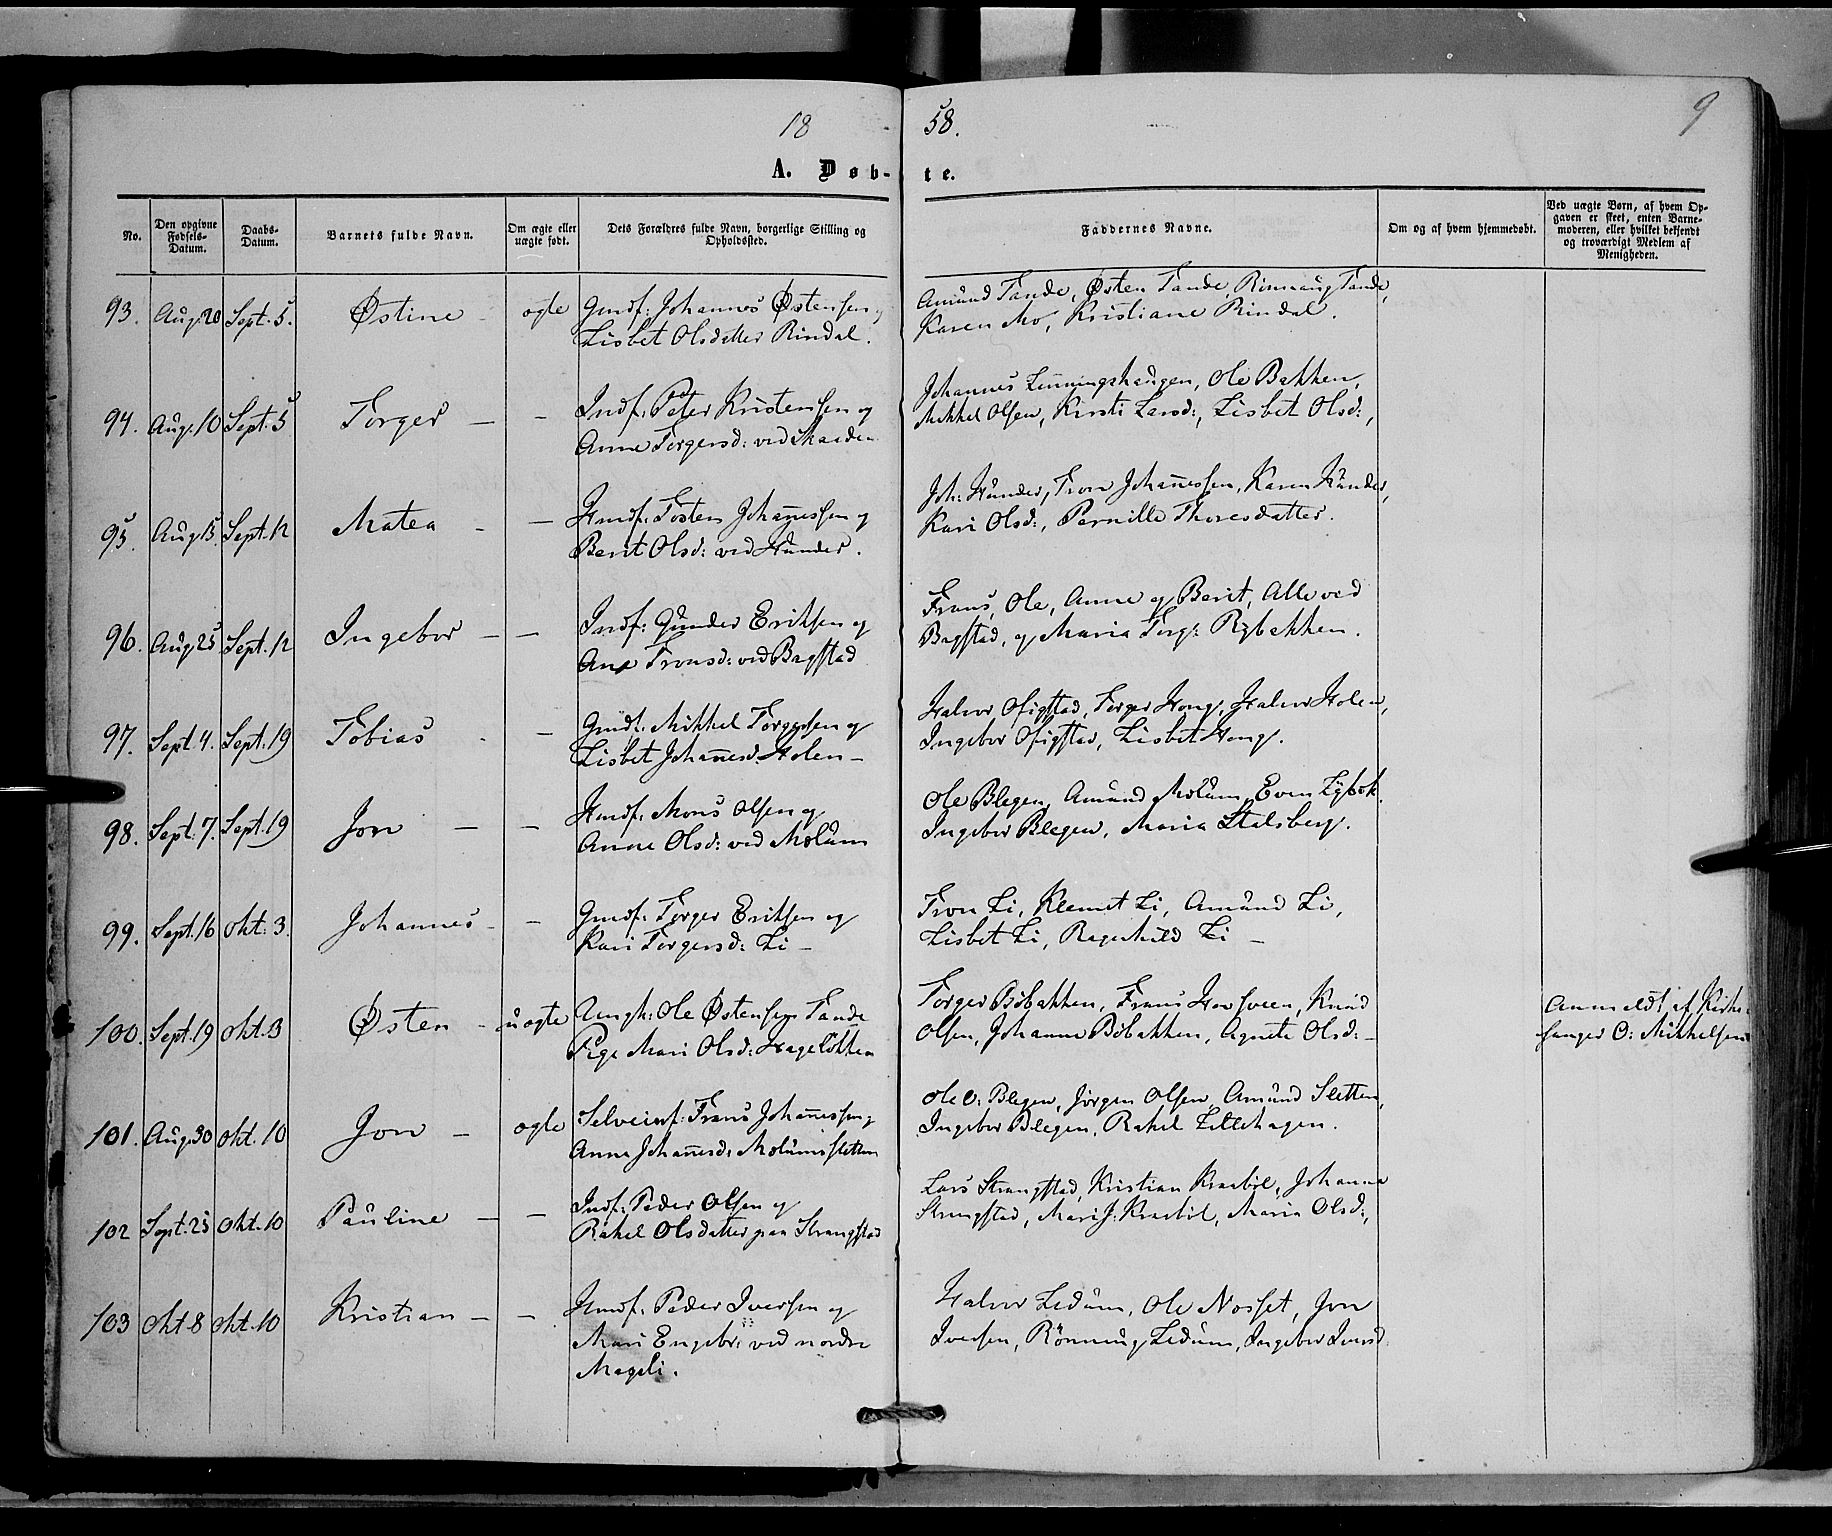 1858.
9
A. Døbte.
No.
Den opgivne Fødsels-Datum.
Daabs-Datum.
Barnets fulde Navn.
Om ægte eller uægte født.
Dets Forældres fulde Navn, borgerlige Stilling og Opholdssted.
Faddernes Navne.
Om og af hvem hjemmedøbt.
Ved uægte Børn, af hvem Opgaven er skeet, enten Barnemoderen, eller hvilket bekjendt og troværdigt Medlem af Menigheden.
93. Aug. 20 Sept. 5. Østine - ægte Gmdf: Johannes Østensen og Amund Tande, Østen Tande, Rinnaug Tande,
Lisbet Olsdatter Rindal. Karen Mo, Kristiane Rindal.
94. Aug. 10 Sept. 5 Torger - - Indf: Peter Kristensen og Johannes Linningshaugen, Ole Bakken,
Anne Torgersd: ved Mikkel Olsen, Kirsti Larsd:, Lisbet Olsd:,
95. Aug. 15. Sept. 12 Matea - - Hmdf: Tosten Johannessen og Joh: Hunder, Tron Johannessen, Karen Hunder,
Berit Olsd: ved Hunder. Kari Olsd:, Pernille Thoresdatter.
96. Aug. 25 Sept. 12 Ingebor - - Indf: Gunder Eriksen og Frans, Ole, Anne og Berit, Alle ved
Ane Tronsd: ved Bagstad Bagstad, og Maria Torg: Rybakken.
97. Sept. 4. Sept. 19 Tobias - - Gmdf: Mikkel Torgersen og Halvor Ofigstad, Torger Hong, Halvor Holen,
Lisbet Johannesd. Holen - Ingebor Ofigstad, Lisbet Hong.
98. Sept. 7. Sept. 19 Jon - - Hmdf: Mons Olsen og Ole Blegen, Amund Molum, Even Lybek.
Anne Olsd: ved Molum Ingebor Blegen, Maria Stalsberg.
99. Sept. 16 Okt: 3. Johannes - - Gmdf: Torger Eriksen og Tron Li, Klemet Li, Amund Li,
Kari Torgersd: Li - Lisbet Li, Ragnhild Li -
100. Sept. 19 Okt. 3 Østen - uægte Ungk: Ole Østensen Tande Torger Bøbakken, Frans Hovsveen, Knud Anmeldt af Kirke-
Pige Mari Olsd: Hageløkken Olsen, Johanne Bøbakken, Agnete Olsd: - sanger O: Mikkelsen
101. Aug. 30 Okt. 10 Jon - ægte Selveierf: Frans Johannessen og Ole O: Blegen, Jørgen Olsen, Amund Sletten,
Anne Johannesd: Molumssletten Ingebor Blegen, Rakel Lillehagen.
102 Sept. 25 Okt. 10 Pauline - - Indf: Peder Olsen og Lars Strangstad, Kristian Kraabøl, Johanna
Rakel Olsdatter paa Strangstad Strangstad, Mari J: Kraabøl, Maria Olsd:,
103 Okt. 8 Okt. 10 Kristian - - Hmdf: Peder Iversen og Halvor Ledum, Ole Nosset, Jon
Mari Engebr: ved nordre Iversen, Rønnaug Ledum, Ingebor Iversd
Mageli.